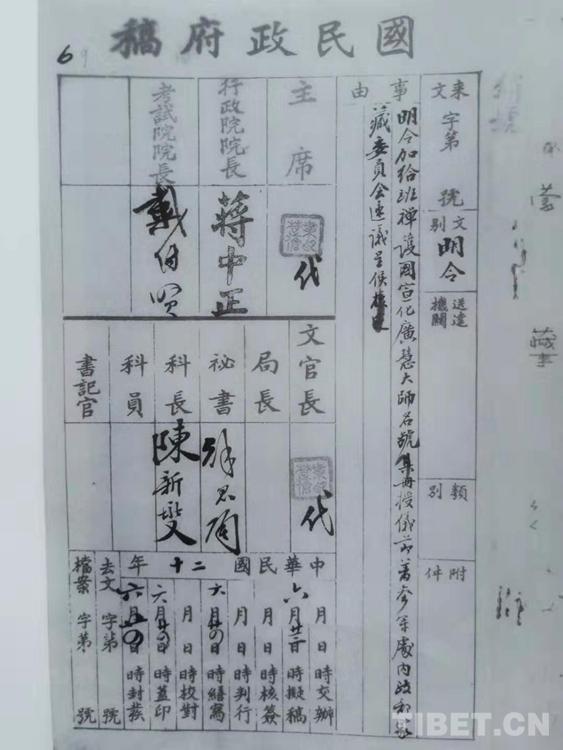 國民政府稿
69
來文 字第 號
文別 明令
送達機關
類別
附件
事由
明令加給班禪護國宣化廣慧大師名號其冊授儀節著參軍處內政部蒙
藏委員會速議呈候
主席 代
行政院院長 蔣中正
考試院院長 戴傳賢
文官長 代
局長
祕書
科長 陳新燮
科員
書記官
中華民國二十年
月 日 時交辦
六月廿三日 時擬稿
月 日 時核簽
月 日 時判行
六月 日 時繕寫
月 日 時校對
六月 日 時蓋印
六月 日 時封發
去文 字第 號
檔案 字第 號
藏事
TIBET.CN